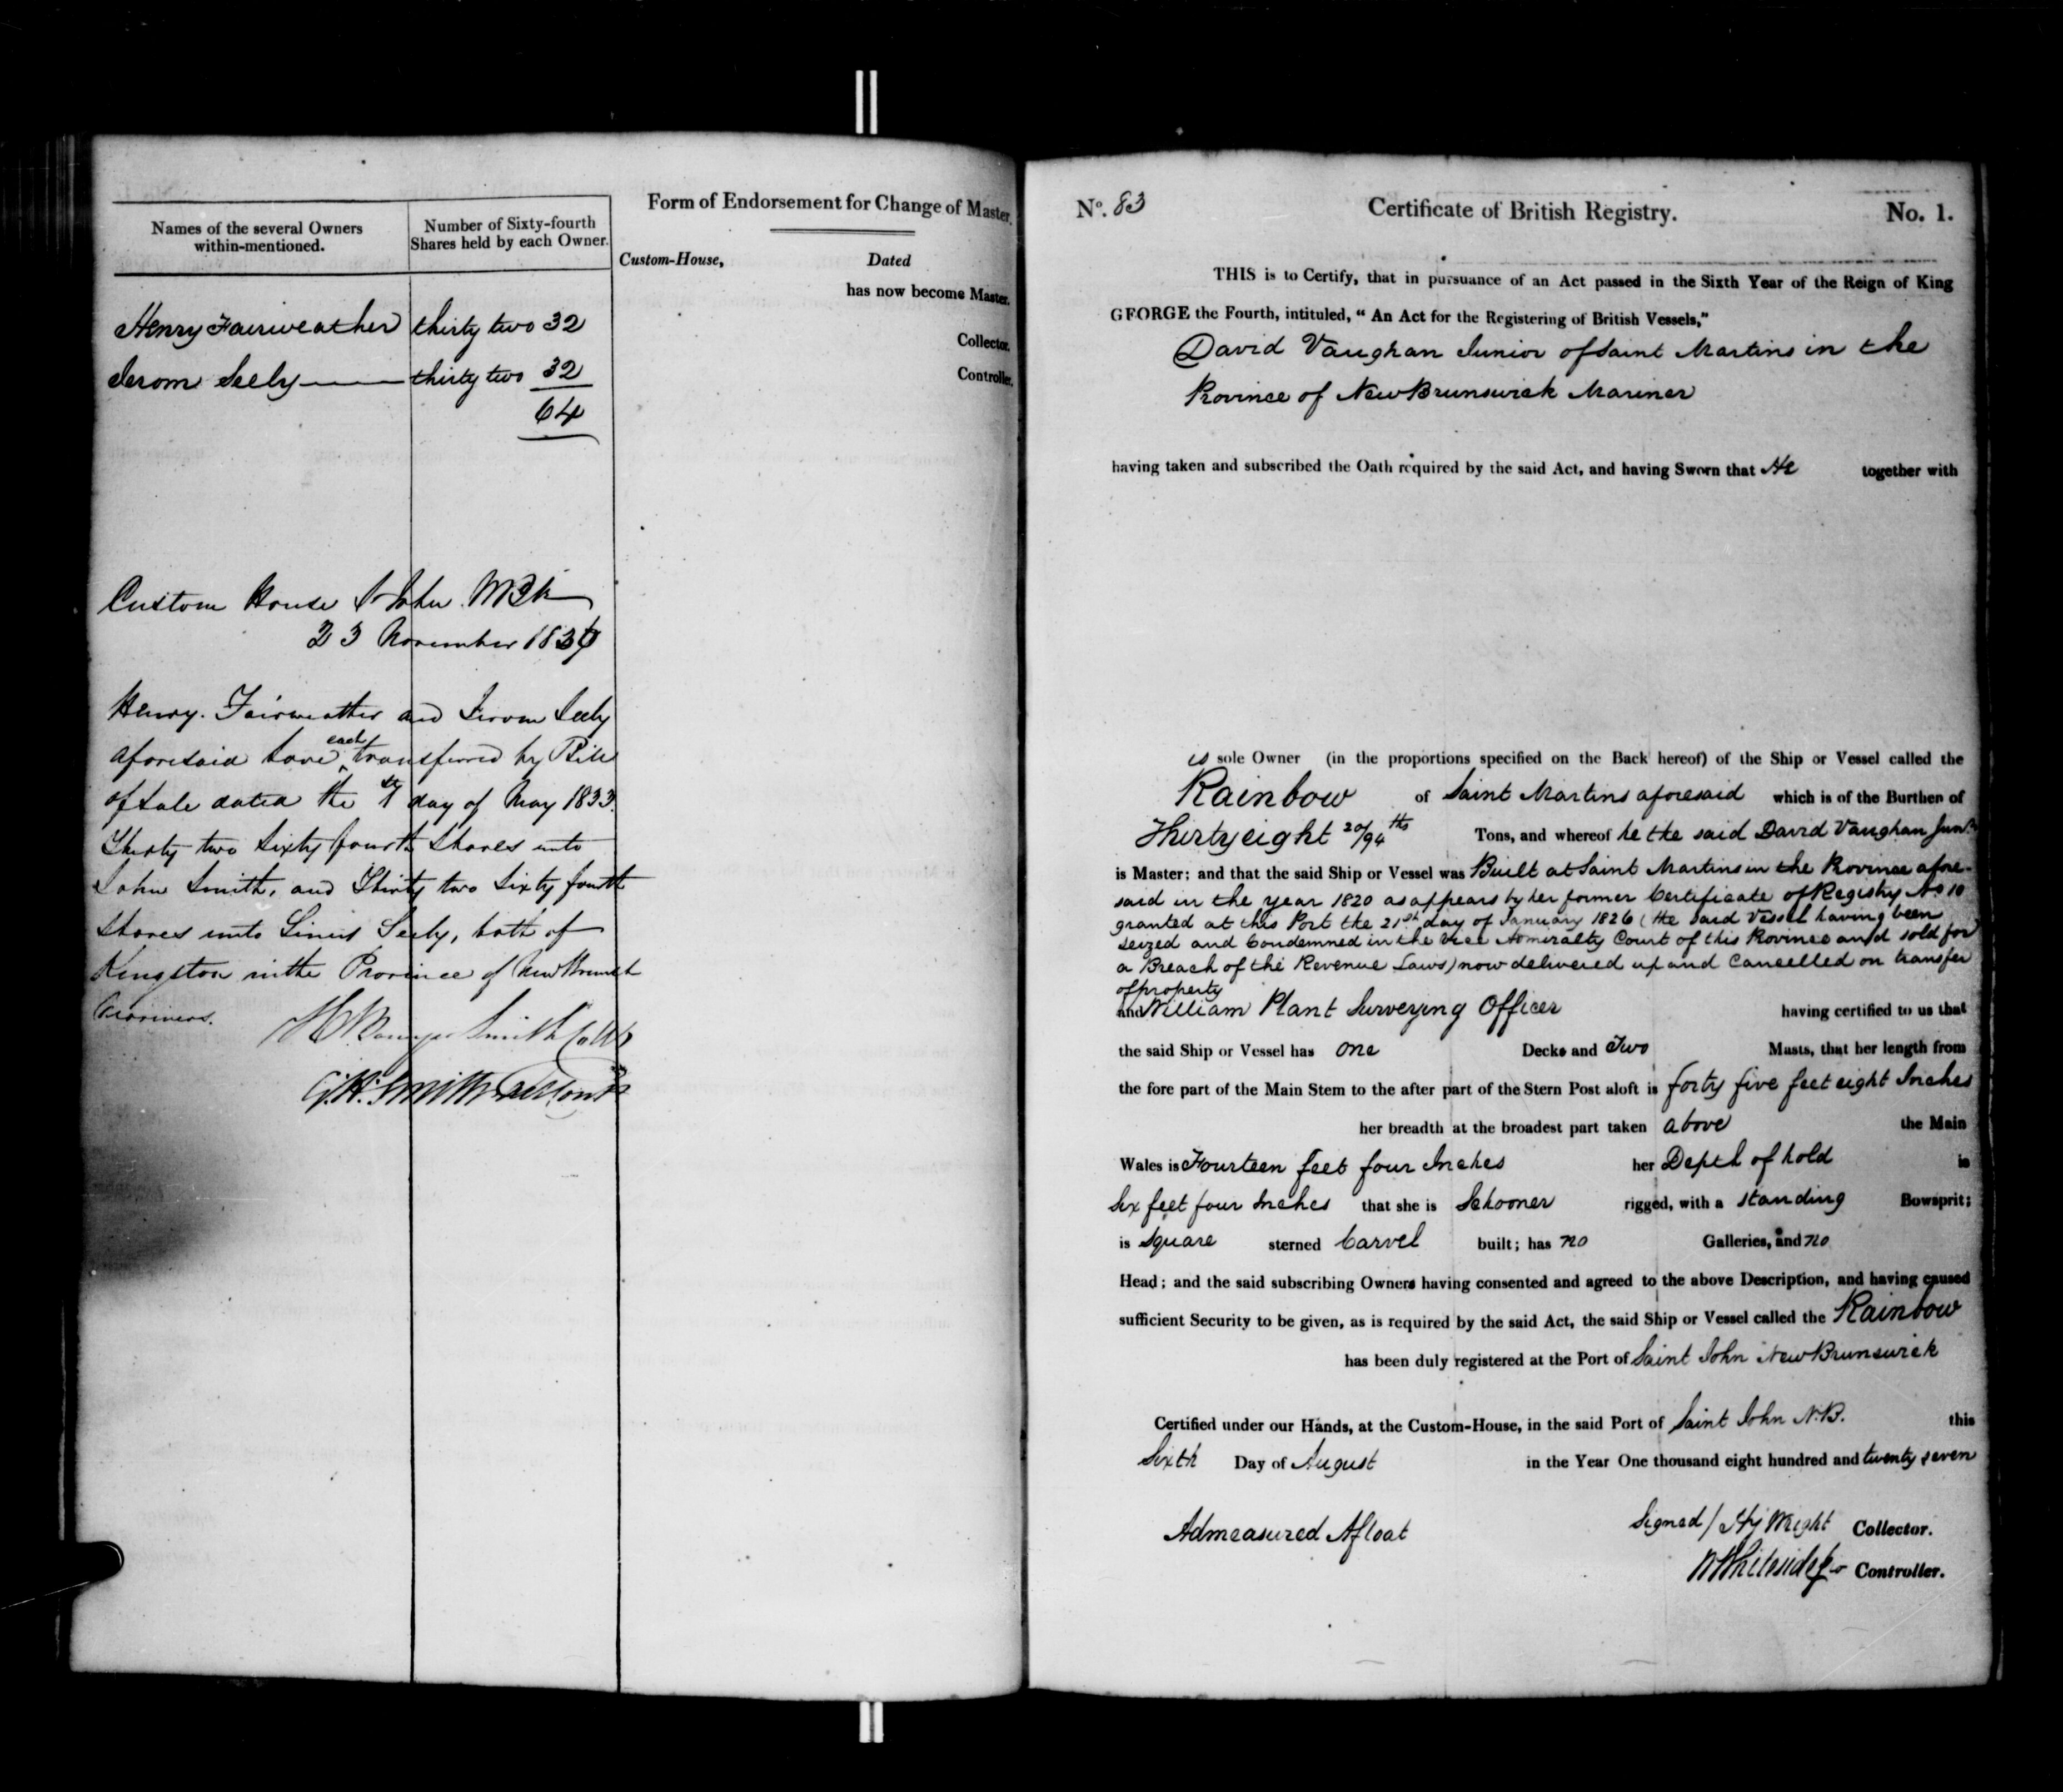 Names of the several Owners
within-mentioned.
Number of Sixty-fourth
Shares held by each Owner.
Henry Fairweather thirty two 32
Jerom Seely thirty two 32
64
Custom House St John NBk
23 November 183
Henry Fairweather and Jerom Seely
aforesaid have each transferred by Bill
of Sale dated the day of May 1833.
Thirty two Sixty fourth Shares unto
John Smith, and Thirty two Sixty fourth
Shares unto Seely, both of
Kingston in the Province of New Brunswk
Mariners.
H. Bowyer Smith Collr
G.H. Smith
Form of Endorsement for Change of Master.
Custom-House, Dated
has now become Master.
Collector.
Controller.
No. 83 Certificate of British Registry. No. 1.
THIS is to Certify, that in pursuance of an Act passed in the Sixth Year of the Reign of King
GEORGE the Fourth, intituled, “ An Act for the Registering of British Vessels,”
David Vaughan Junior of Saint Martins in the
Province of New Brunswick Mariner
having taken and subscribed the Oath required by the said Act, and having Sworn that He together with
is sole Owner (in the proportions specified on the Back hereof) of the Ship or Vessel called the
Rainbow of Saint Martins aforesaid which is of the Burthen of
Thirty eight 20/94ths Tons, and whereof he the said David Vaughan Junr.
is Master; and that the said Ship or Vessel was Built at Saint Martins in the Province afore-
said in the year 1820 as appears by her former Certificate of Registry No 10
granted at this Port the 21st day of January 1826 (the said Vessel having been
seized and Condemned in the Vice Admiralty Court of this Province and sold for
a Breach of the Revenue Laws) now delivered up and Cancelled on transfer
of property
and William Plant Surveying Officer having certified to us that
the said Ship or Vessel has one Decks and Two Masts, that her length from
the fore part of the Main Stem to the after part of the Stern Post aloft is forty five feet eight Inches
her breadth at the broadest part taken above the Main
Wales is Fourteen feet four Inches her Depth of hold is
Six feet four Inches that she is Schooner rigged, with a standing Bowsprit;
is Square sterned Carvel built; has no Galleries, and no
Head; and the said subscribing Owners having consented and agreed to the above Description, and having caused
sufficient Security to be given, as is required by the said Act, the said Ship or Vessel called the Rainbow
has been duly registered at the Port of Saint John New Brunswick
Certified under our Hands, at the Custom-House, in the said Port of Saint John N.B. this
Sixth Day of August in the Year One thousand eight hundred and twenty seven
Admeasured Afloat
Signed/ Hy Wright Collector.
Whiteside Controller.